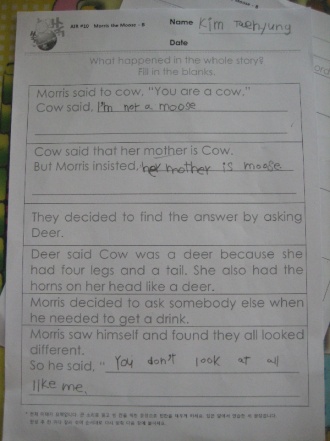 AER P10 Morris the Moose - B
Name Kim Taehyung
Date
What happened in the whole story?
Fill in the blanks.
Morris said to cow. "You are a cow."
Cow said. I'm not a moose
Cow said that her mother is Cow.
But Morris insisted. her mother is moose
They decided to find the answer by asking
Deer.
Deer said Cow was a deer because she
had four legs and a tail. She also had the
horns on her head like a deer.
Morris decided to ask somebody else when
he needed to get a drink.
Morris saw himself and found they all looked
different.
So he said, "You don't look at all
like me.